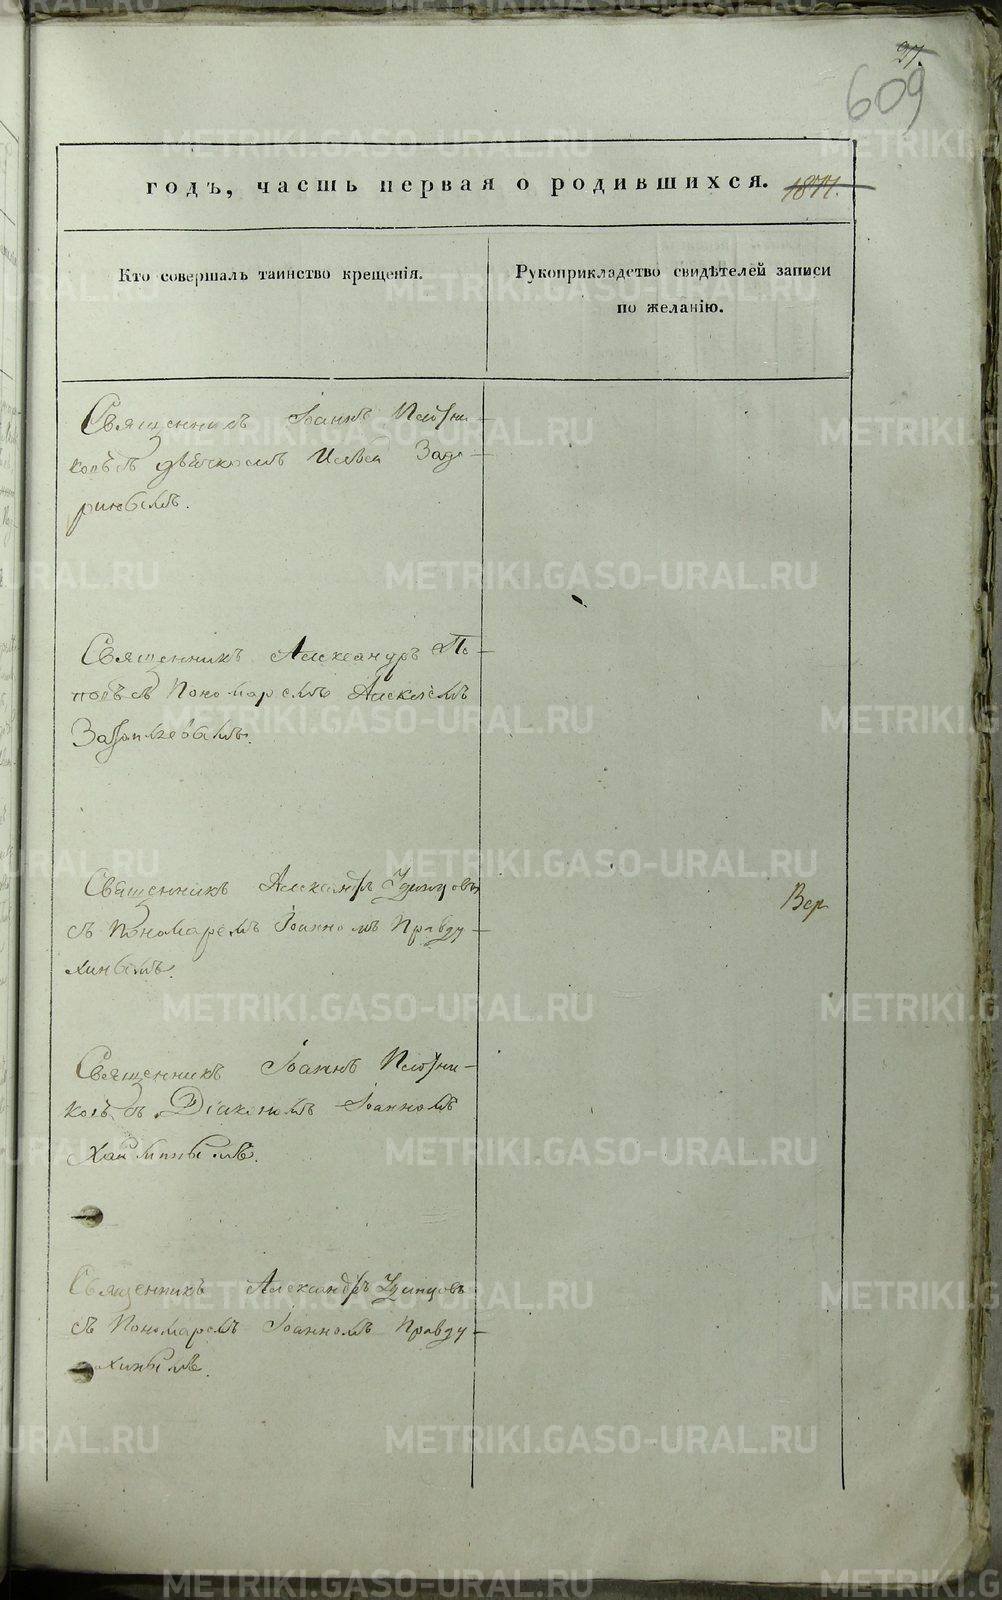 27.
609
годъ, часть первая о родившихся. 1871.
Кто совершалъ таинство крещенія.
Рукоприкладство свидѣтелей записи
по желанію.
Священникъ Іоаннъ Плотни-
ковъ съ дьячкомъ Ильею Задо-
ринымъ.
Священникъ Александръ По-
повъ съ Пономаремъ Алексѣемъ
Священникъ Александръ Удинцовъ
съ Пономаремъ Іоанномъ Правду-
хинымъ.
Вер
Священникъ Іоаннъ Плотни-
ковъ съ Діакономъ Іоанномъ
Священникъ Александръ Удинцовъ
съ Пономаремъ Іоанномъ Правду-
хинымъ.
METRIKI.GASO-URAL.RU